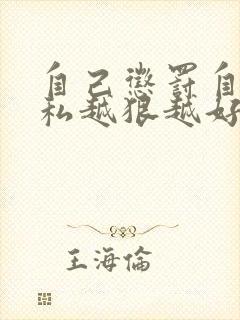 自己懲罰自
私越狠越好
王海倫